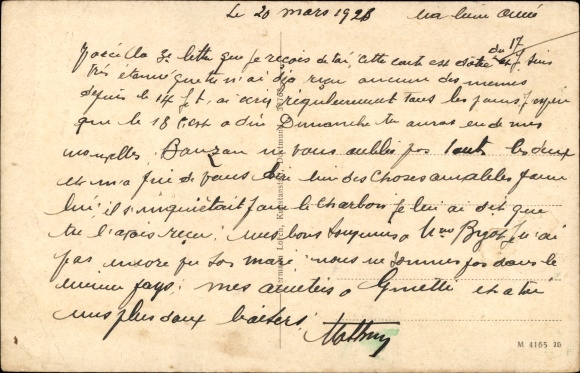 Le 20 mars 1923 ma bien aimée
voici la 3e lettre que je reçois de toi, cette carte est datée du 17 je suis
très étonné que tu n'ai pas reçu aucune des miennes
depuis le 14 je t'ai écris régulièrement tous les jours j'espère
que le 18 c'est a dire Dimanche tu auras eu de mes
nouvelles. ne vous oublie pas tout les deux
et m'a prié de vous dire bien des choses aimables pour
lui; il s'inquiétait pour le charbon je lui ai dit que
tu l'avais reçu; mes bons toujours a Mme je n'ai
pas encore vu son mari nous ne sommes pas dans le
même pays; mes amitiés a Ginette et a toi
mes plus doux baisers.
M 4165 26